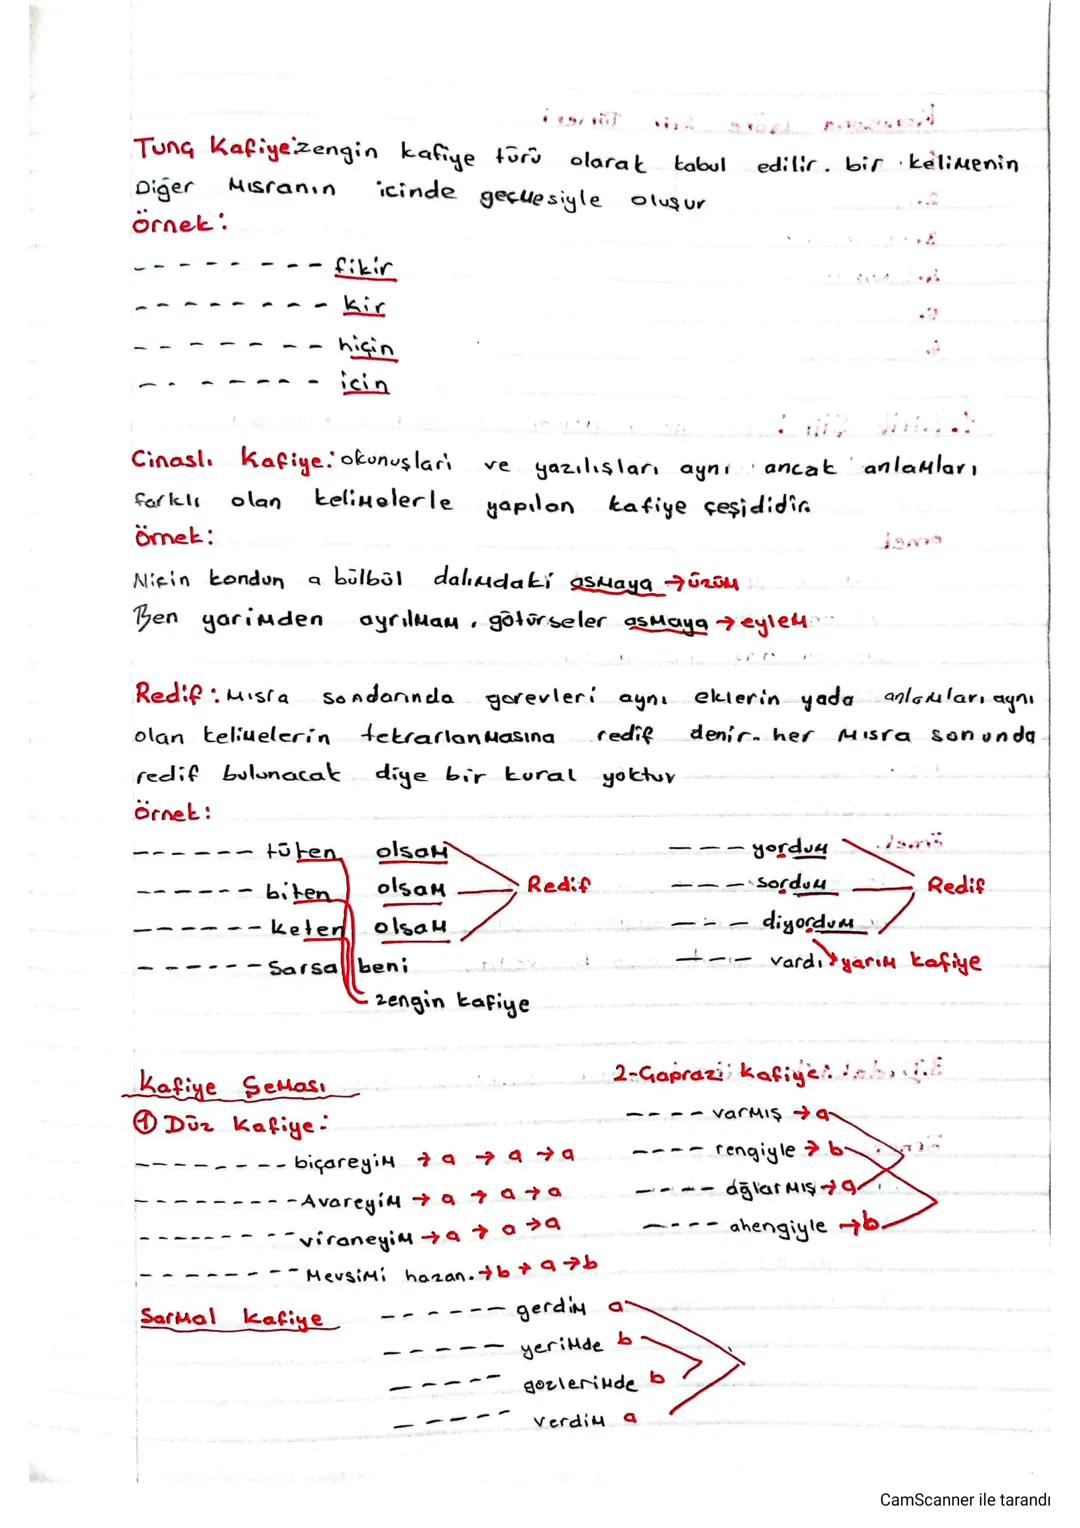 Tunç Kafiye:zengin kafiye türü olarak kabul edilir. bir kelimenin
Diğer Mısranın icinde geçmesiyle oluşur
örnek:
--------- fikir
--------- kir
------- hiçin
-------- icin
Cinaslı Kafiye: okunuşlari ve yazılışları aynı ancak anlamları
farklı olan kelimelerle yapılan kafiye çeşididir.
örnek:
Niçin kondun a bülbül dalımdaki asmaya → üzüm
Ben yarimden ayrılmam, götürseler asmaya → eylem
Redif: Mısra sondarında gorevleri aynı eklerin yada anlamları aynı
olan kelimelerin tekrarlanmasına redif denir. her Mısra sonunda
redif bulunacak diye bir kural yoktur
örnek:
------ tüten olsam
------ biten olsam Redif
------ keten olsam
------ Sarsa beni
zengin kafiye
--- yordum
--- sordum Redif
--- diyordum
---- vardı yarım kafiye
Kafiye Şeması
① Düz Kafiye:
-------- biçareyim → a → a → a
--------- Avareyim → a → a → a
-------- viraneyim → a → a → a
-------- Mevsimi hazan. → b → a → b
2-Çaprazi kafiye:
---- varmış → a
---- rengiyle → b
---- dğlarmış → a
---- ahengiyle → b
Sarmal kafiye
------ gerdim a
------ yerimde b
----- gozlerimde b
----- verdim a
CamScanner ile tarandı